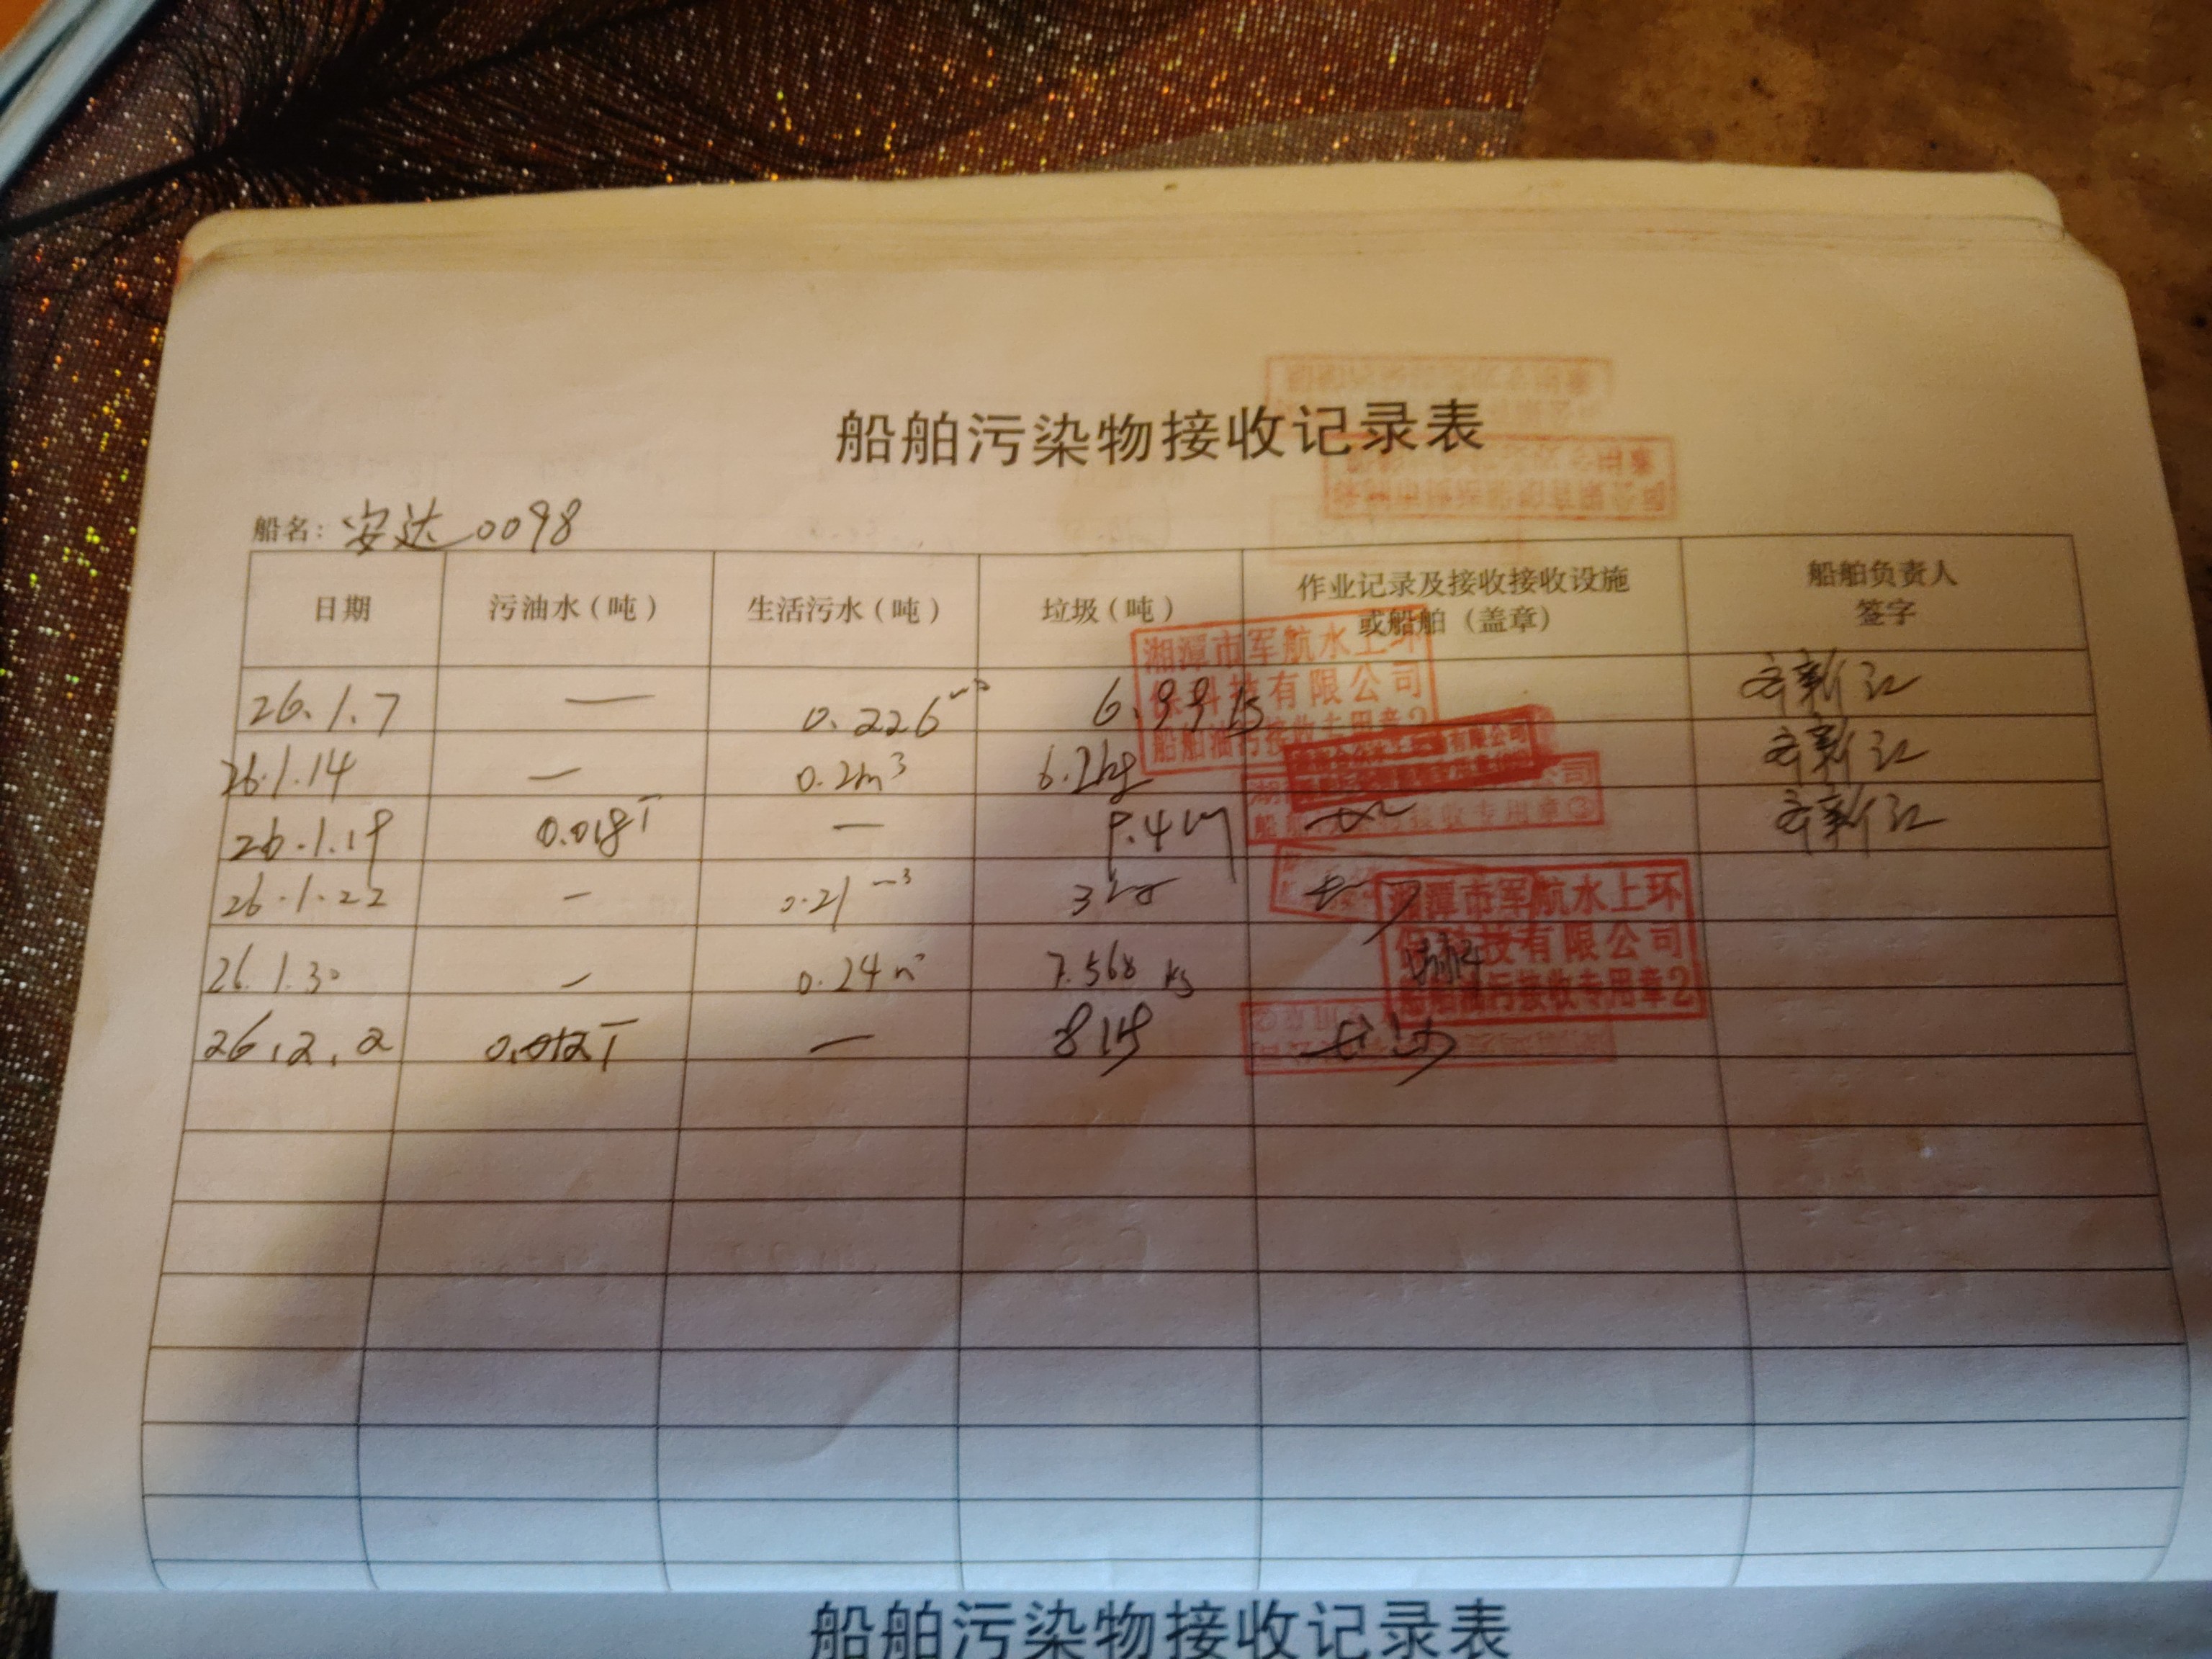 船舶污染物接收记录表
船名：安达0098
日期 污油水（吨） 生活污水（吨） 垃圾（吨） 作业记录及接收接收设施或船舶（盖章） 船舶负责人签字
湘潭市军航水上环
保科技有限公司
船舶油污接收专用章2
26.1.7 — 0.226 6.99
26.1.14 — 0.2m³ 6.2kg
有限公司
公司
接收专用章③
26.1.19 0.018T — 9.4
26.1.22 — 0.21 3
湘潭市军航水上环
保科技有限公司
船舶油污接收专用章2
26.1.30 — 0.24 7.568 kg
26.2.2 0.012T — 8 长沙
船舶污染物接收记录表